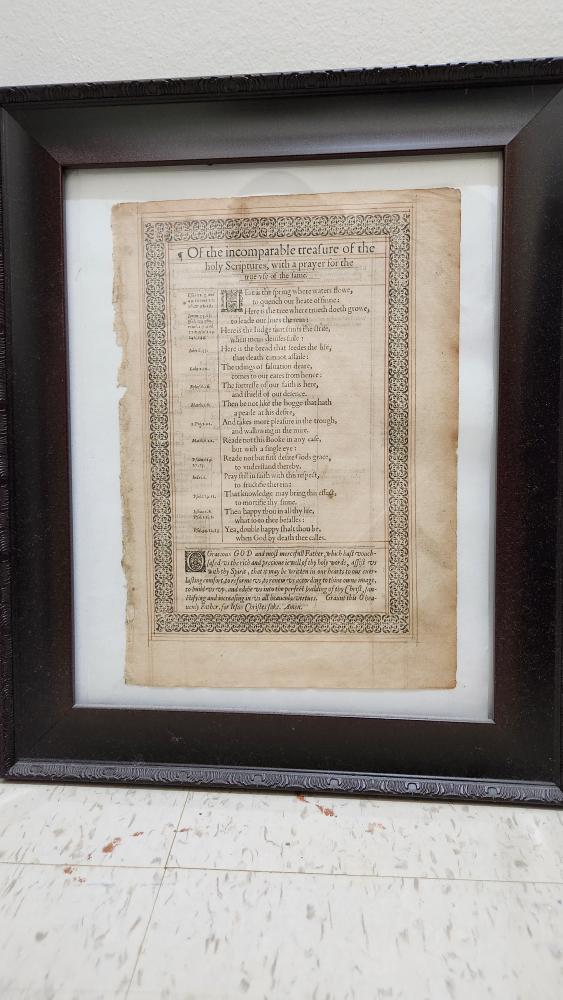 ¶ Of the incomparable treasure of the
holy Scriptures, with a prayer for the
true vse of the same.
HEre is the spring where waters flowe,
to quench our heate of sinne:
Here is the tree where trueth doeth growe,
to leade our liues therein:
Here is the Iudge that stints the strife,
when mens deuises faile:
Here is the bread that feedes the life,
that death cannot assaile:
The tidings of saluation deare,
comes to our eares from hence:
The fortresse of our faith is here,
and shield of our defence.
Then be not like the hogge that hath
a pearle at his desire,
And takes more pleasure in the trough,
and wallowing in the mire.
Reade not this Booke in any case,
but with a single eye:
Reade not but first desire Gods grace,
to vnderstand thereby.
Pray still in faith with this respect,
to fructifie therein:
That knowledge may bring this effect,
to mortifie thy sinne.
Then happy thou in all thy life,
what so to thee befalles:
Yea, double happy shalt thou be,
when God by death thee calles.
O Gracious GOD and most mercifull Father, which hast vouch-
safed vs the rich and precious iewell of thy holy word, assist vs
with thy Spirit, that it may be written in our hearts to our euer-
lasting comfort, to reforme vs, to renew vs according to thine owne image,
to build vs vp, and edifie vs into the perfect building of thy Christ, san-
ctifying and increasing in vs all heauenly vertues. Graunt this O hea-
uenly Father, for Iesus Christes sake. Amen.